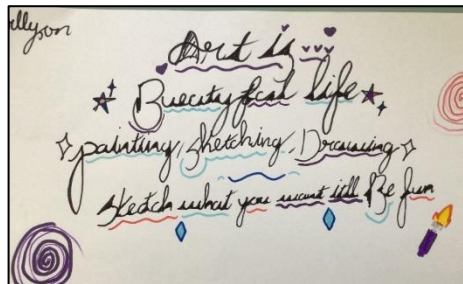 Art is
Bueautyfcat life
painting, Sketching, Drawing
Sketch what you want itll Be fun